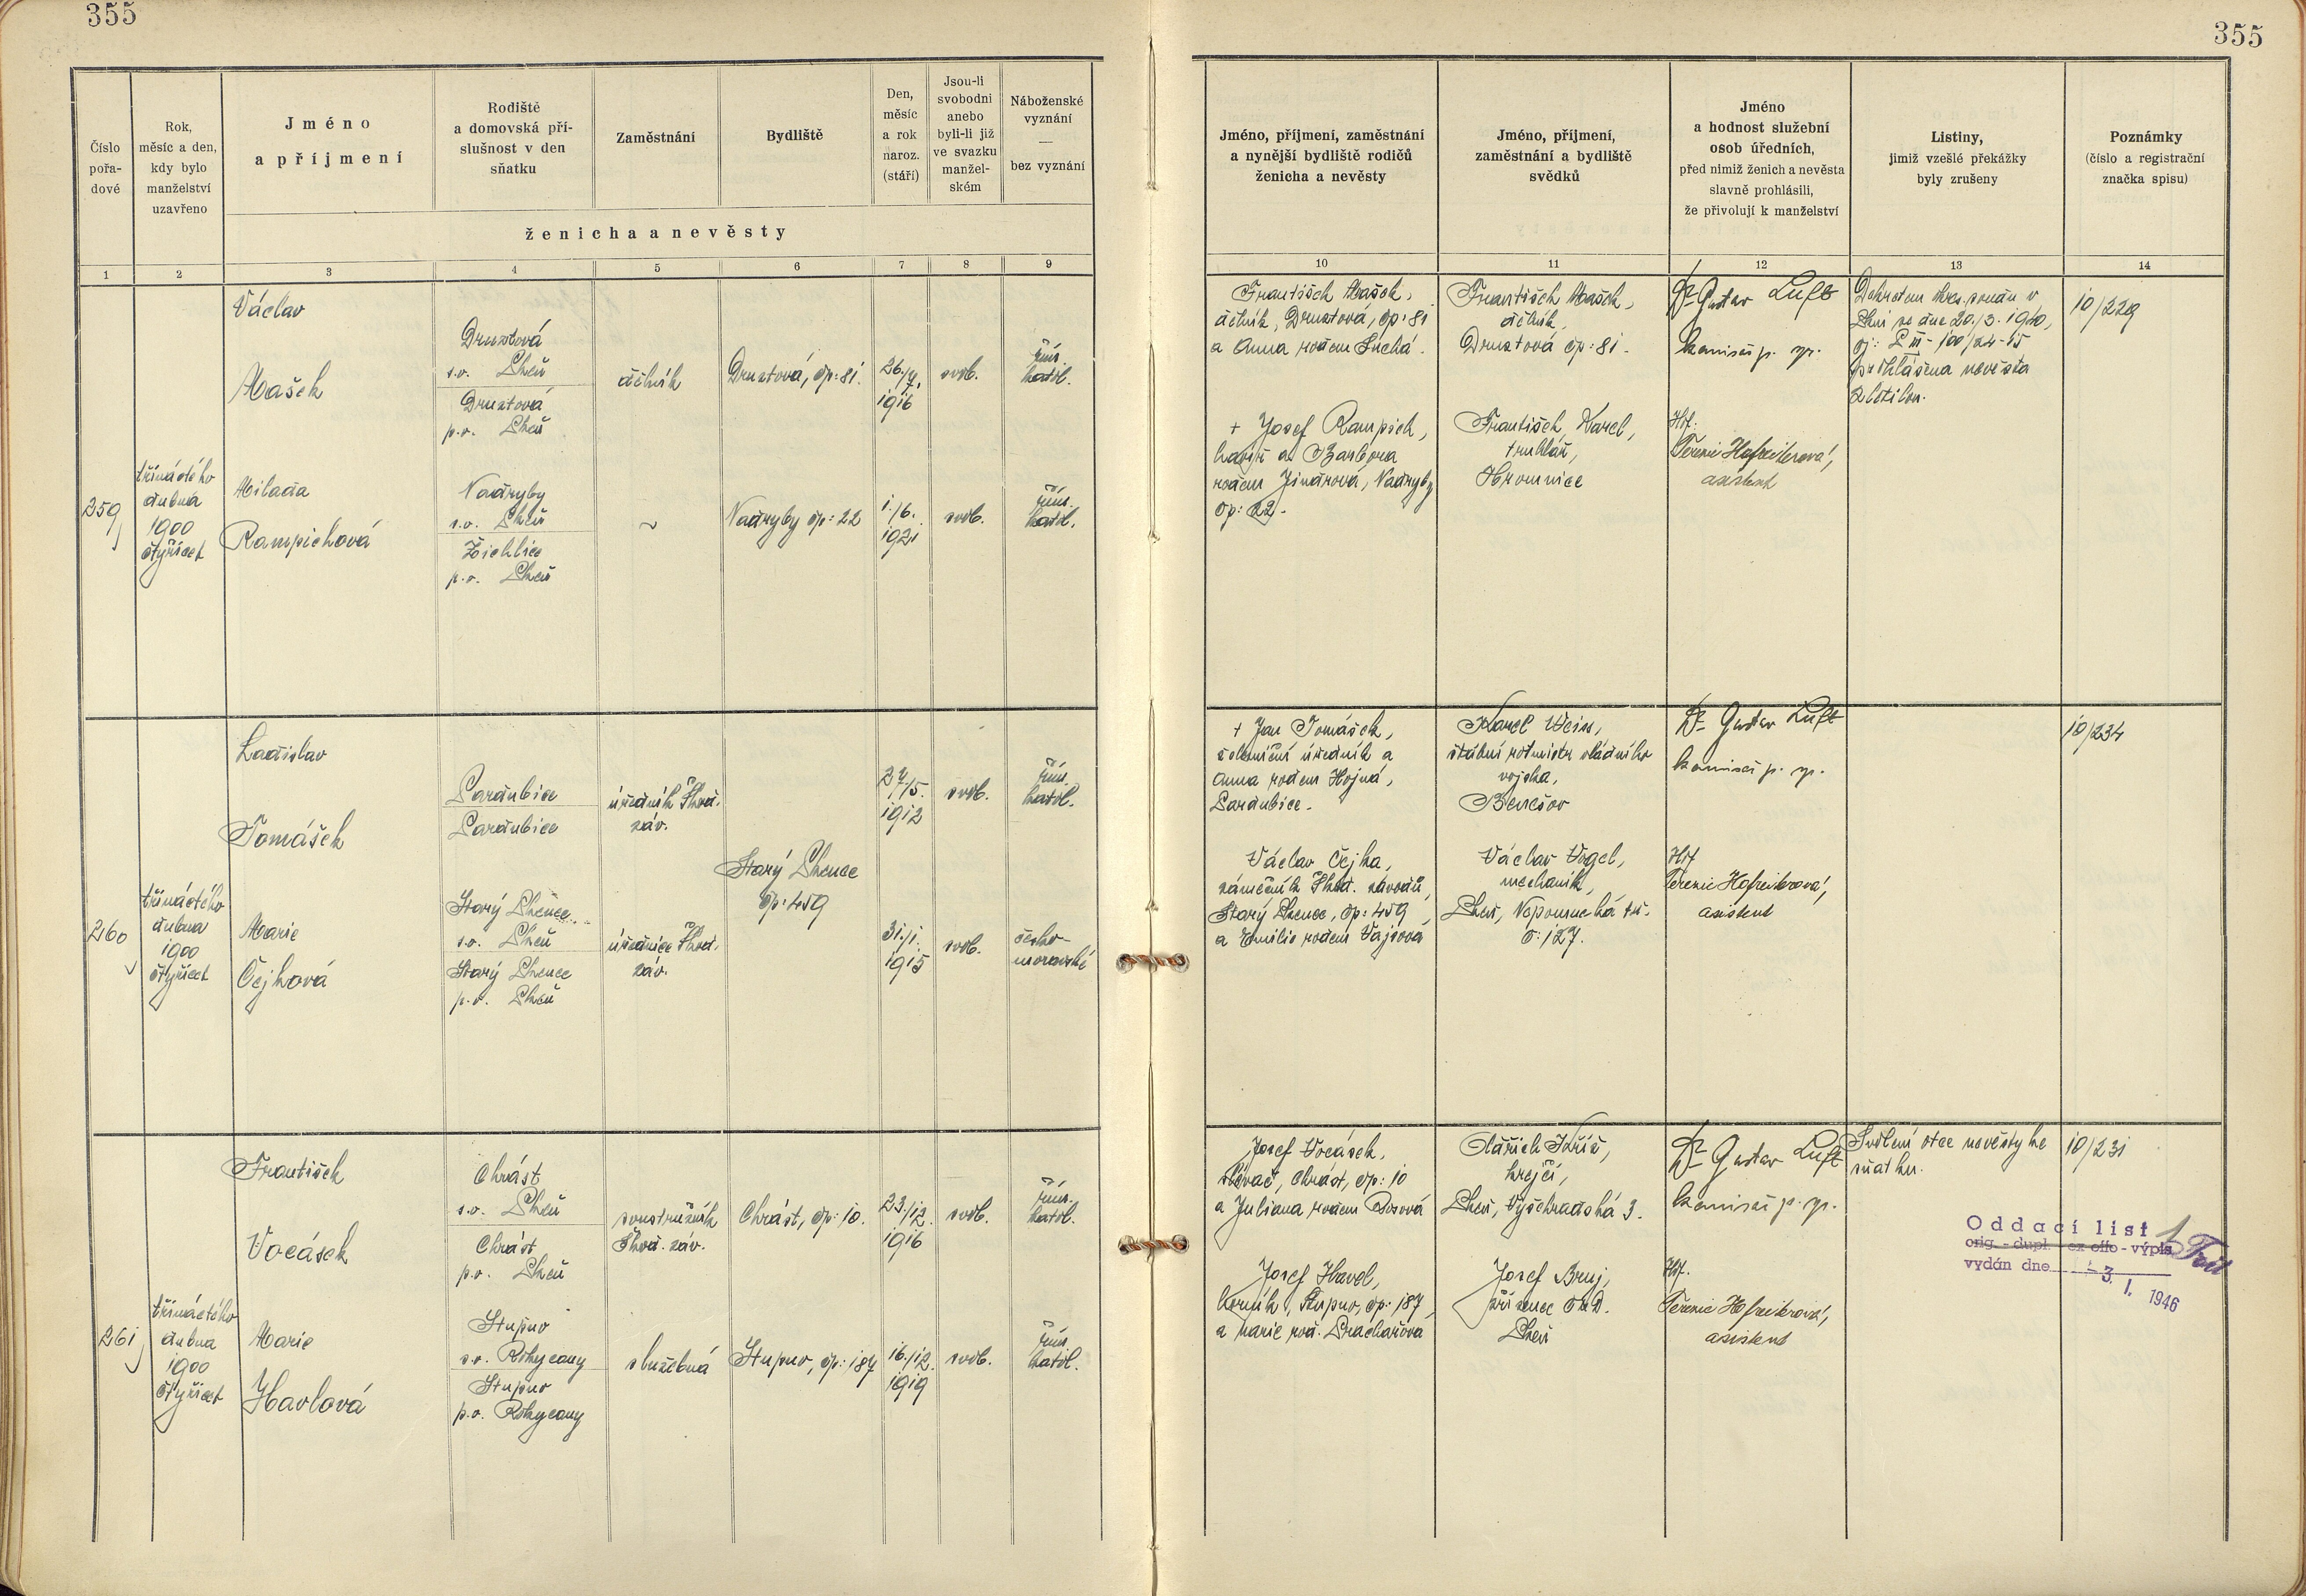 355
355
Číslo pořa-dové
Rok, měsíc a den, kdy bylo manželství uzavřeno
Jméno a příjmení
Rodiště a domovská pří-slušnost v den sňatku
Zaměstnání
Bydliště
Den, měsíc a rok naroz. (stáří)
Jsou-li svobodni anebo byli-li již ve svazku manžel-ském
Náboženské vyznání — bez vyznání
ženicha a nevěsty
Jméno, příjmení, zaměstnání a nynější bydliště rodičů ženicha a nevěsty
Jméno, příjmení, zaměstnání a bydliště svědků
Jméno a hodnost služební osob úředních, před nimiž ženich a nevěsta slavně prohlásili, že přivolují k manželství
Listiny, jimiž vzešlé překážky byly zrušeny
Poznámky (číslo a registrační značka spisu)
1 2 3 4 5 6 7 8 9 10 11 12 13 14
259
třináctého
dubna
1900
čtyřicet
Václav
Mašek
Druztová
s.o. Plzeň
Druztová
p.o. Plzeň
dělník
Druztová, čp: 81.
26./7.
1916
svob.
řím.
katol.
Milada
Rampichová
Nadryby
s.o. Plzeň
Žichlice
p.o. Plzeň
~
Nadryby čp: 22
1./6.
1921
svob.
řím.
katol.
František Mašek,
dělník, Druztová, čp: 81
a Anna rodem Suchá.
+ Josef Rampich,
havíř a Barbora
rodem Jindrová, Nadryby
čp: 22.
František Mašek,
dělník,
Druztová čp: 81.
František Karel,
truhlář,
Hromnice
Dr Gustav Luft
komisař p. sp.
Terezie Hofreiterová,
asistent
Dekretem Okres. soudu v
Plzni ze dne 20./3. 1940,
čj: P III - 100/24-15
prohlášena nevěsta
zletilou.
10/229
260
třináctého
dubna
1900
čtyřicet
Ladislav
Tomášek
Pardubice
Pardubice
úředník Škod.
záv.
Starý Plzenec
čp: 459
27/5.
1912
svob.
řím.
katol.
Marie
Čejková
Starý Plzenec
s.o. Plzeň
Starý Plzenec
p.o. Plzeň
úřednice Škod.
záv.
31./1.
1915
svob.
česko-
moravské
+ Jan Tomášek,
železniční úředník a
Anna rodem Hojná,
Pardubice.
Václav Čejka,
zámečník Škod. závodů,
Starý Plzenec, čp: 459,
a Emilie rodem Vajsová
Karel Weiss,
štábní rotmistr vládního
vojska,
Benešov
Václav Vogel,
mechanik,
Plzeň, Nepomucká tř.
č: 127.
Dr Gustav Luft
komisař p. sp.
Terezie Hofreiterová,
asistent
10/234
261
třináctého
dubna
1900
čtyřicet
František
Vocásek
Chrást
s.o. Plzeň
Chrást
p.o. Plzeň
soustružník
Škod. záv.
Chrást, čp: 10.
23./12.
1916
svob.
řím.
katol.
Marie
Havlová
Stupno
s.o. Rokycany
Stupno
p.o. Rokycany
služebná
Stupno, čp: 187
16./12.
1919
svob.
řím.
katol.
Josef Vocásek,
slévač, Chrást, čp: 10
a Juliana rodem
Josef Havel,
horník, Stupno, čp: 187,
a Marie roz. Prachařová
Oldřich Kříž,
krejčí,
Plzeň, Vyšehradská 3.
Josef Bruj,
zřízenec ČMD.
Plzeň
Dr Gustav Luft
komisař p. sp.
Terezie Hofreiterová,
asistent
Svolení otce nevěsty ke
sňatku.
10/231
Oddací list
orig. - dupl. - ex offo - výpis
vydán dne - 3. 1. 1946